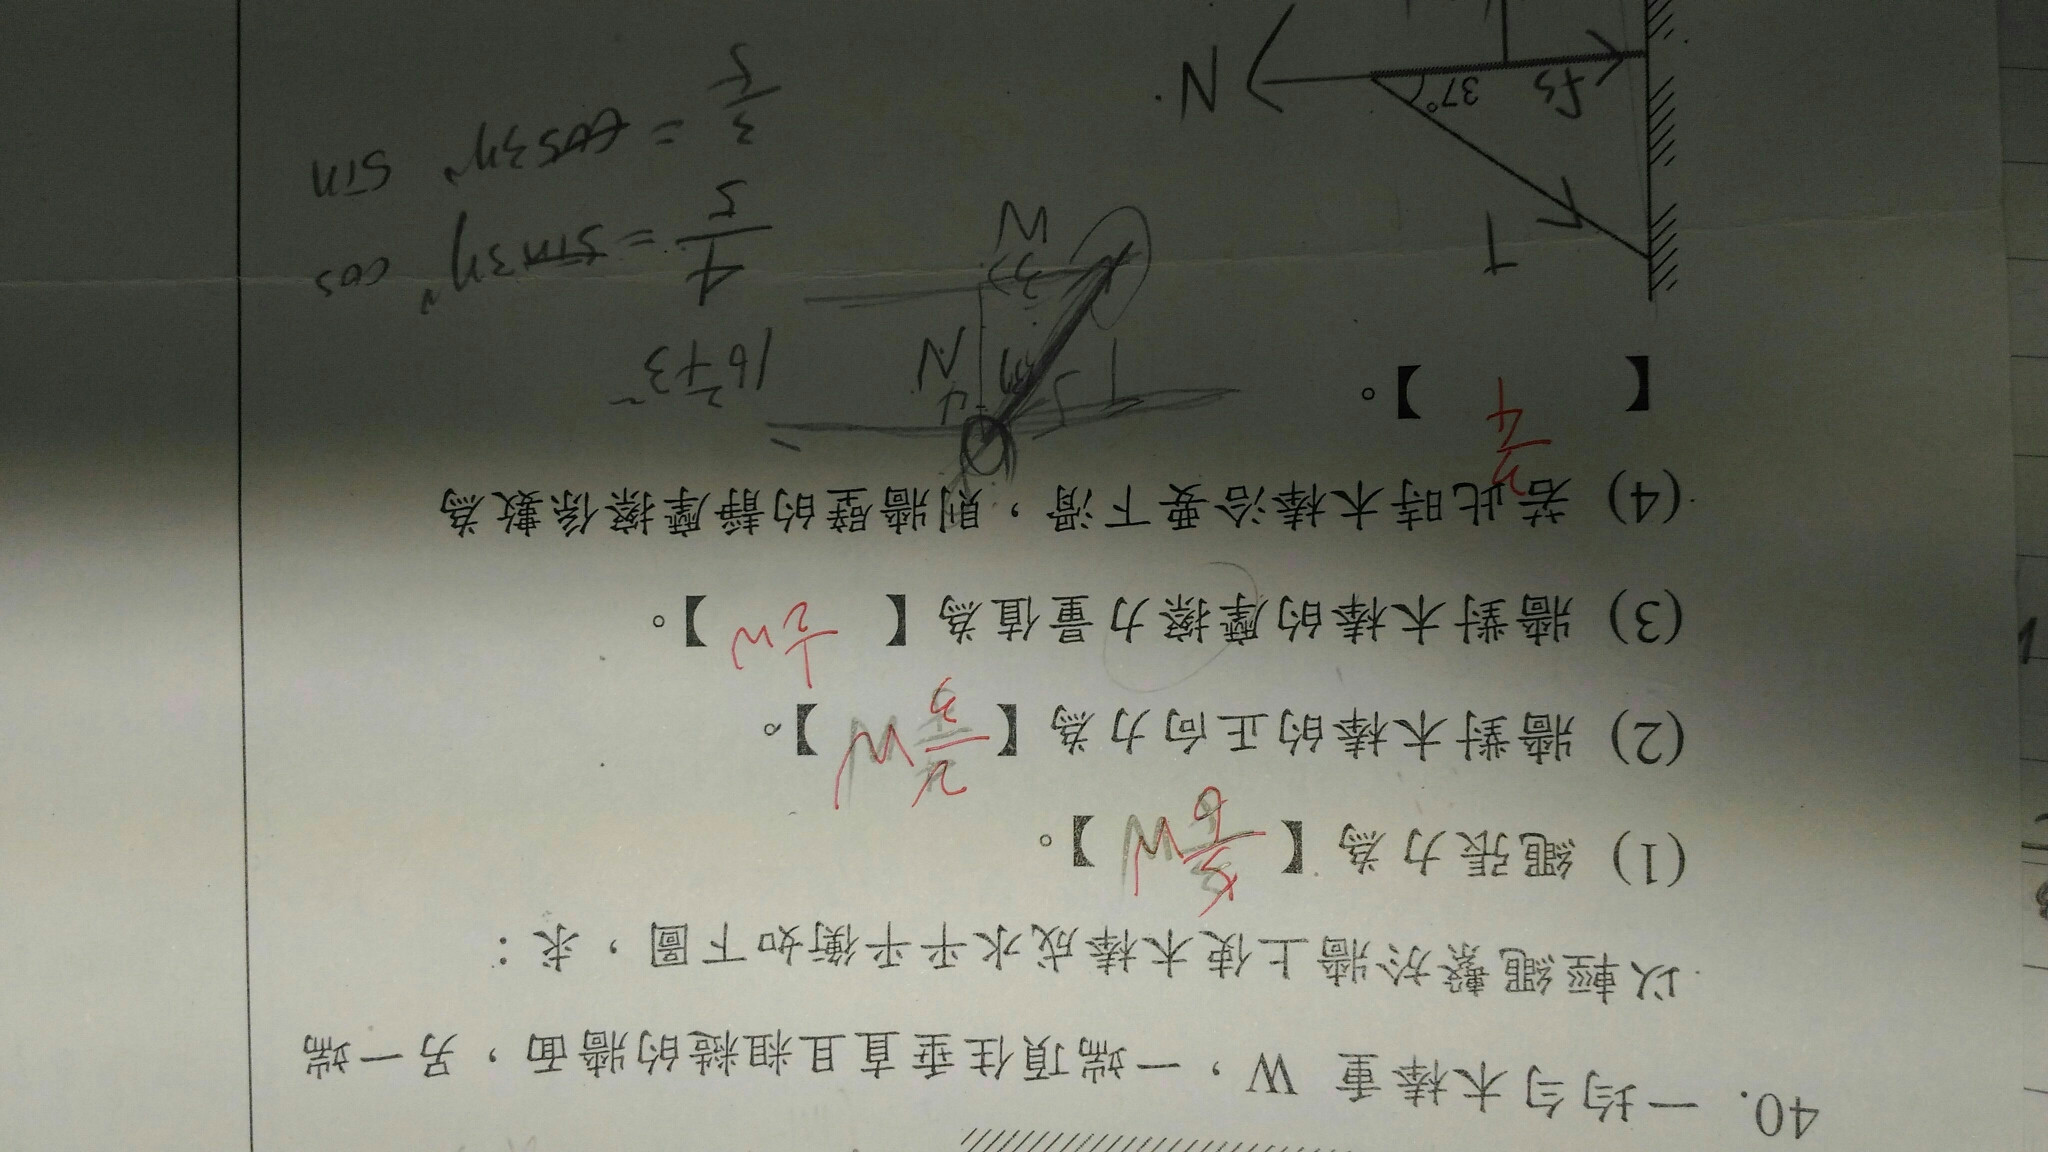 40. 一均勻木棒重 W，一端頂住垂直且粗糙的牆面，另一端
以輕繩繫於牆上使木棒成水平平衡如下圖，求：
(1) 繩張力為【5/6 W】。
(2) 牆對木棒的正向力為【2/3 W】。
(3) 牆對木棒的摩擦力量值為【1/2 W】。
(4) 若此時木棒恰要下滑，則牆壁的靜摩擦係數為
【3/4】。
T
37°
fs
N
T
5
4
N
3
W
16+3²
4/5 = sin37° cos
3/5 = cos37° sin